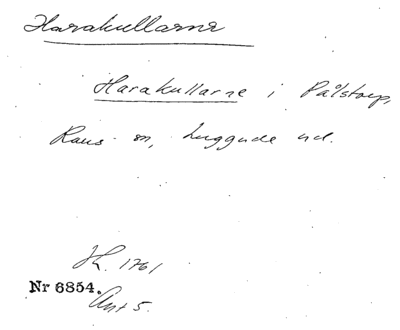 Harakullarne
Harakullarne i Pålstorp,
Raus sn, Luggude hd.
1761
Nr 6854.
Ant 5.